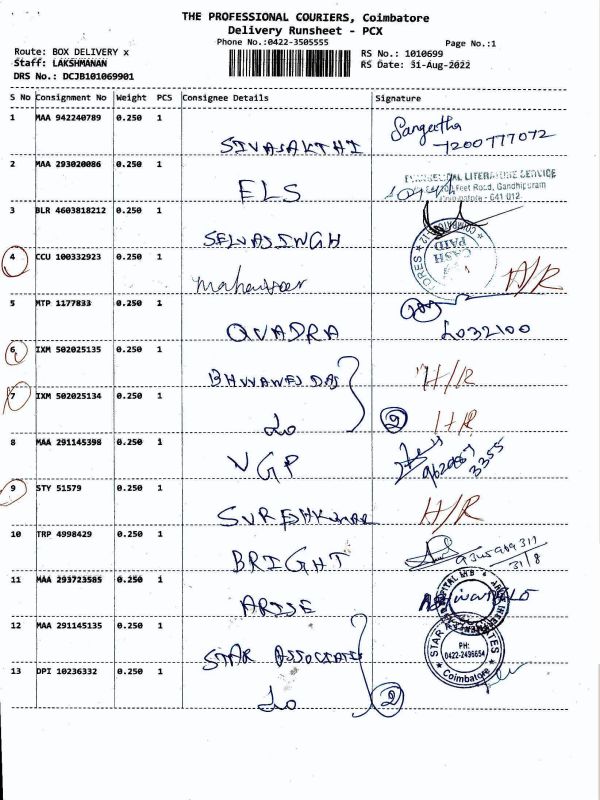 THE PROFESSIONAL COURIERS, Coimbatore
Delivery Runsheet - PCX
Phone No.:0422-3505555
Page No.:1
Route: BOX DELIVERY x
RS No.: 1010699
Staff: LAKSHMANAN
RS Date: 31-Aug-2022
DRS No.: DCJB101069901
S No Consignment No Weight PCS Consignee Details Signature
1 MAA 942240789 0.250 1 SIVASAKTHI Sangeetha
7200777072
2 MAA 293020086 0.250 1 ELS
LITERATURE SERVICE
Feet Road, Gandhipuram
Coimbatore - 641 012
3 BLR 4603818212 0.250 1 SELVASINGH
CASH
PAID
4 CCU 100332923 0.250 1 A/R
5 MTP 1177833 0.250 1 QUADRA
6 IXM 502025135 0.250 1 H/R
7 IXM 502025134 0.250 1 2
8 MAA 291145398 0.250 1 VGP
3355
9 STY 51579 0.250 1 SURESHKUMAR H/R
10 TRP 4998429 0.250 1 BRIGHT
31/8
11 MAA 293723585 0.250 1 ARISE
12 MAA 291145135 0.250 1 STAR ASSOCIATES
STAR
PH:
0422-2496654
Coimbatore
13 DPI 10236332 0.250 1 2